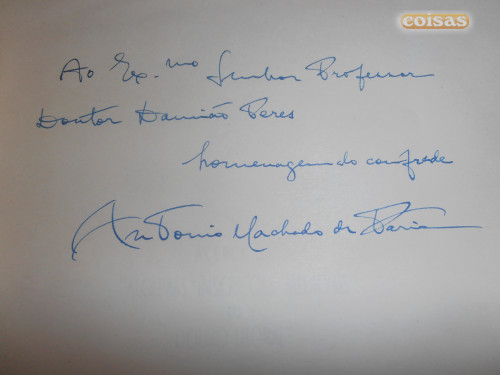 coisas
Ao Ex.mo Senhor Professor
Doutor Damião Peres
homenagem do confrade
António Machado de Faria